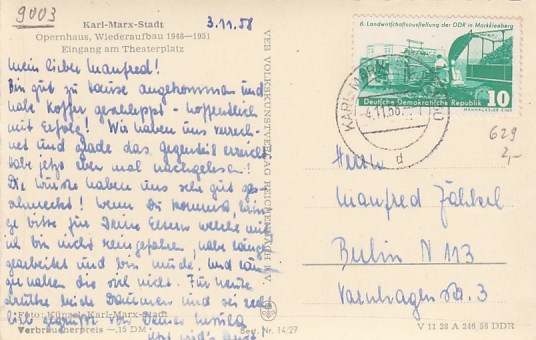 9003
Karl-Marx-Stadt
Opernhaus, Wiederaufbau 1948—1951
Eingang am Theaterplatz
3.11.58
Mein lieber Manfred!
Bin gut zu Hause angekommen und
habe Koffer geschleppt - hoffentlich
mit Erfolg! Wir haben uns verrech-
net und grade das gegenteil erreicht
habe jetzt eben mal nachgelesen!
Die Würste haben uns sehr gut ge-
schmeckt! Wenn Du kommst, brin-
ge bitte für Deine Eltern welche mit
ich bin nicht reingefahren, habe lange
gearbeitet und bin müde, und
haben die viel nicht. Für heute
drücke beide Daumen und sei recht
lieb gegrüßt von Deiner
Foto: Künzel, Karl-Marx-Stadt
Verbraucherpreis —,15 DM
Best. Nr. 14/27
VEB VOLKSKUNSTVERLAG REICHENBACH I. V.
6. Landwirtschaftsausstellung der DDR in Markkleeberg
Deutsche Demokratische Republik
10
KARL-MARX-
4.11.58
d
629
2,-
Herrn
Manfred
Berlin N 113
Varnhagenstr. 3
V 11 28 A 246 58 DDR